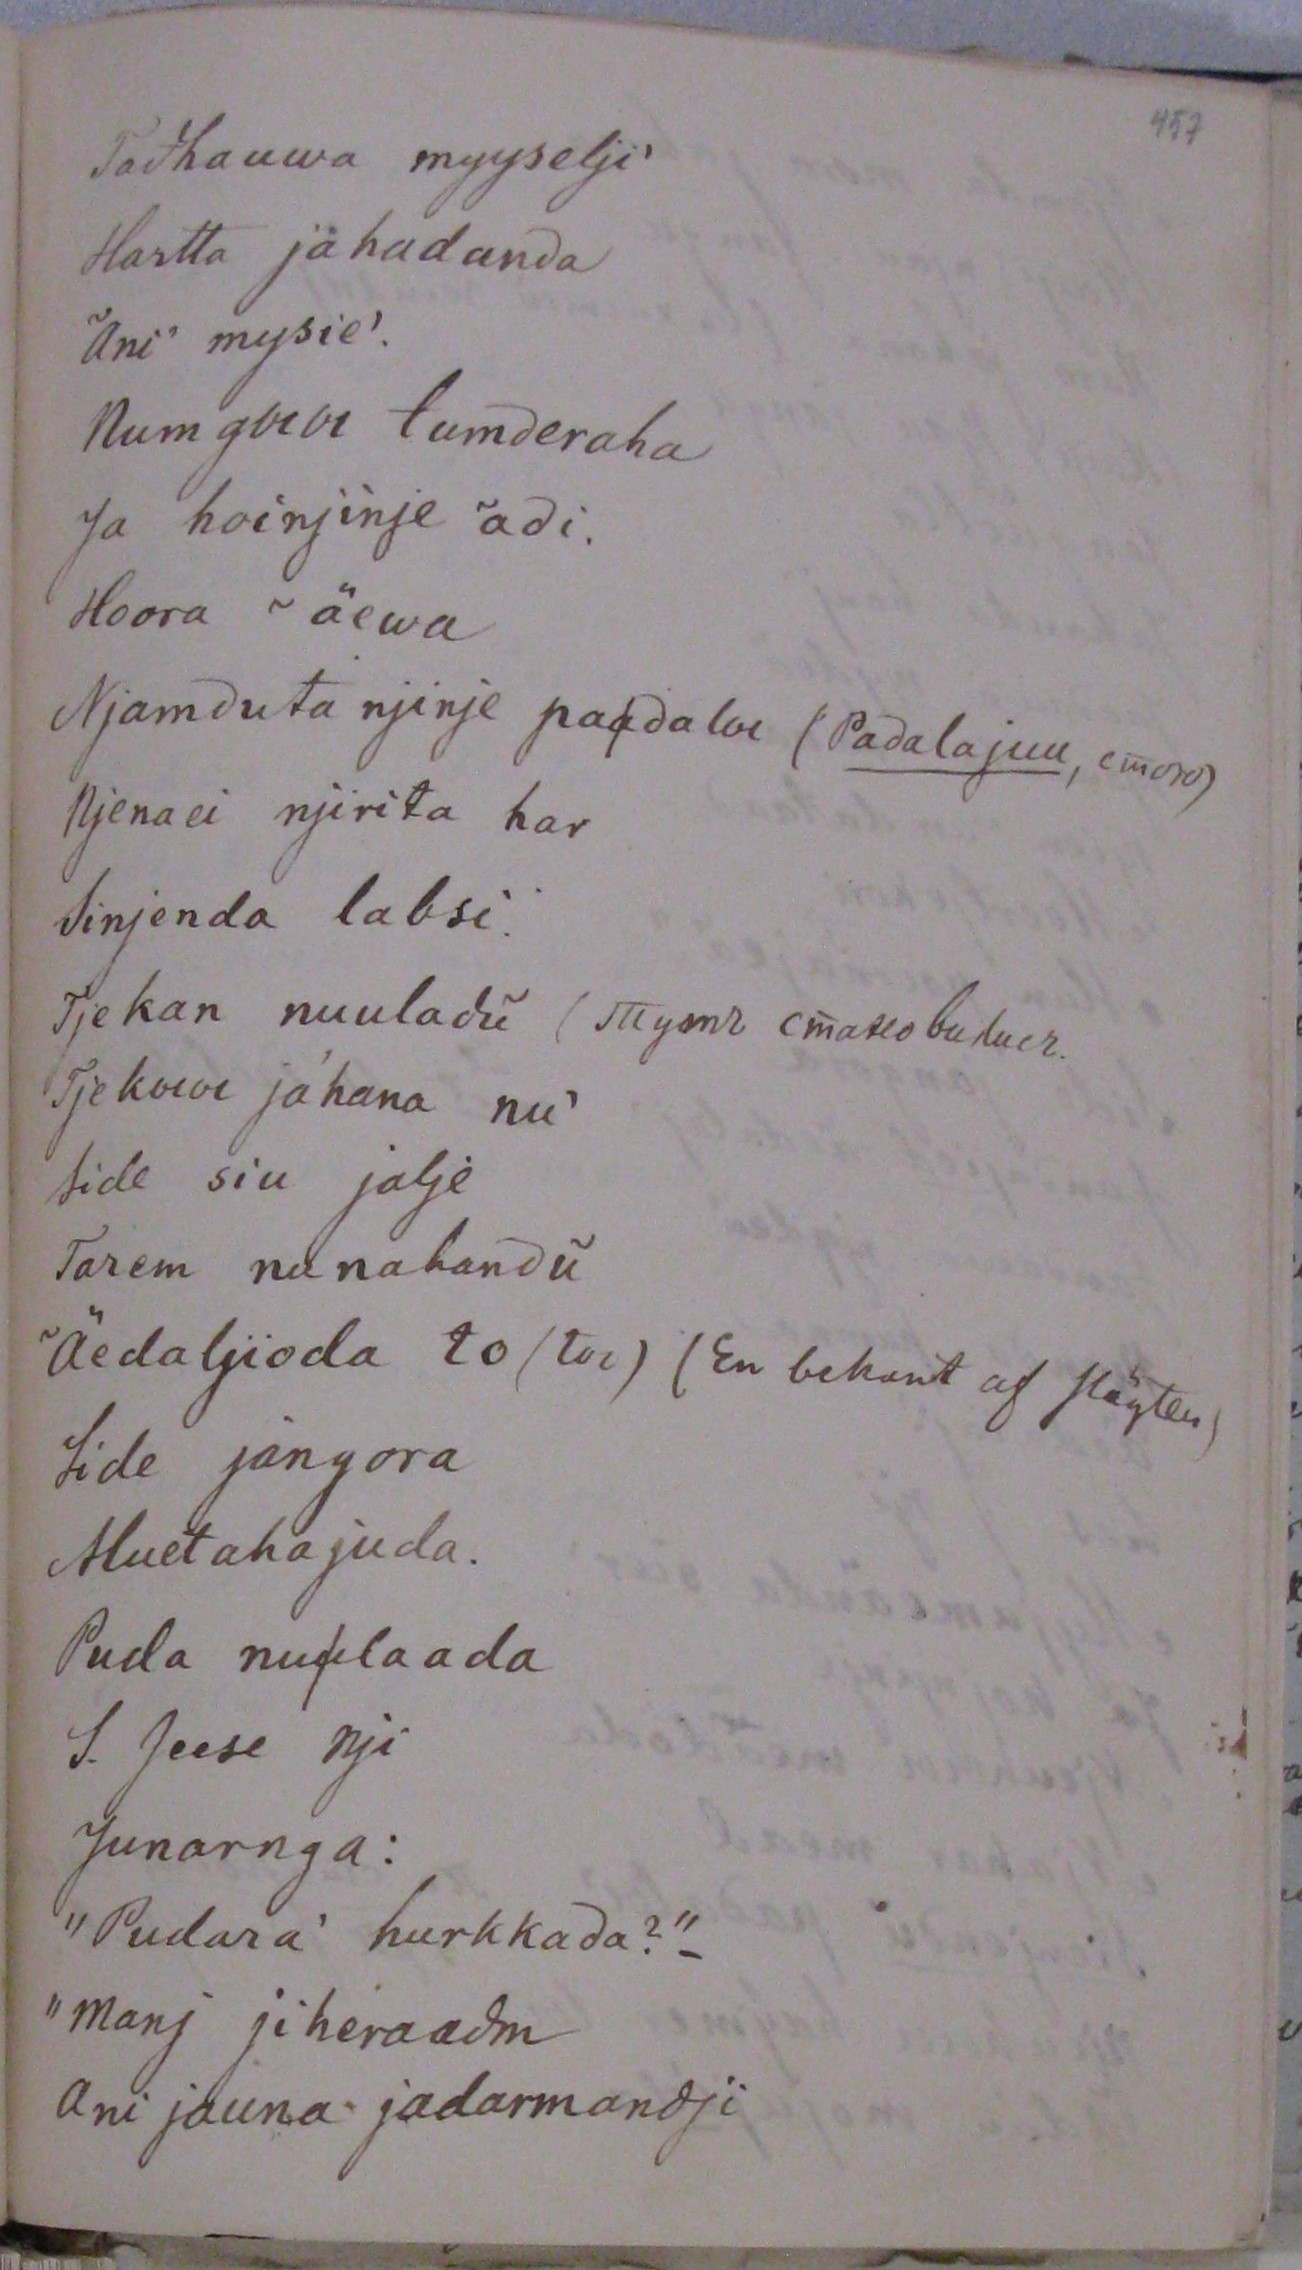 457
Tadhauwa myyselji'
Hartta jähadanda
˜Ani' mysie'.
Numgыы tumderaha
Ja hoinjinje ˜adi.
Hoora ˜ äewa
Njamduta njinje padalы (Padalajuu, стого)
Njenaei njirita har
Sinjenda labsi'.
Tjekan nuuladu˜ (Тутъ становилися.
Tjekыы ja'hana nu'
Side siu jalje
Tarem nunahandu˜
˜Äedaljioda to (tы) (En bekant af slägten)
Side jangora
Muetahajuda.
Puda nulaada
S. Jeese nji
Junarnga:
"Pudara' hurkkada?"-
"Manj jiheraadm
Ani jauna jadarmandji